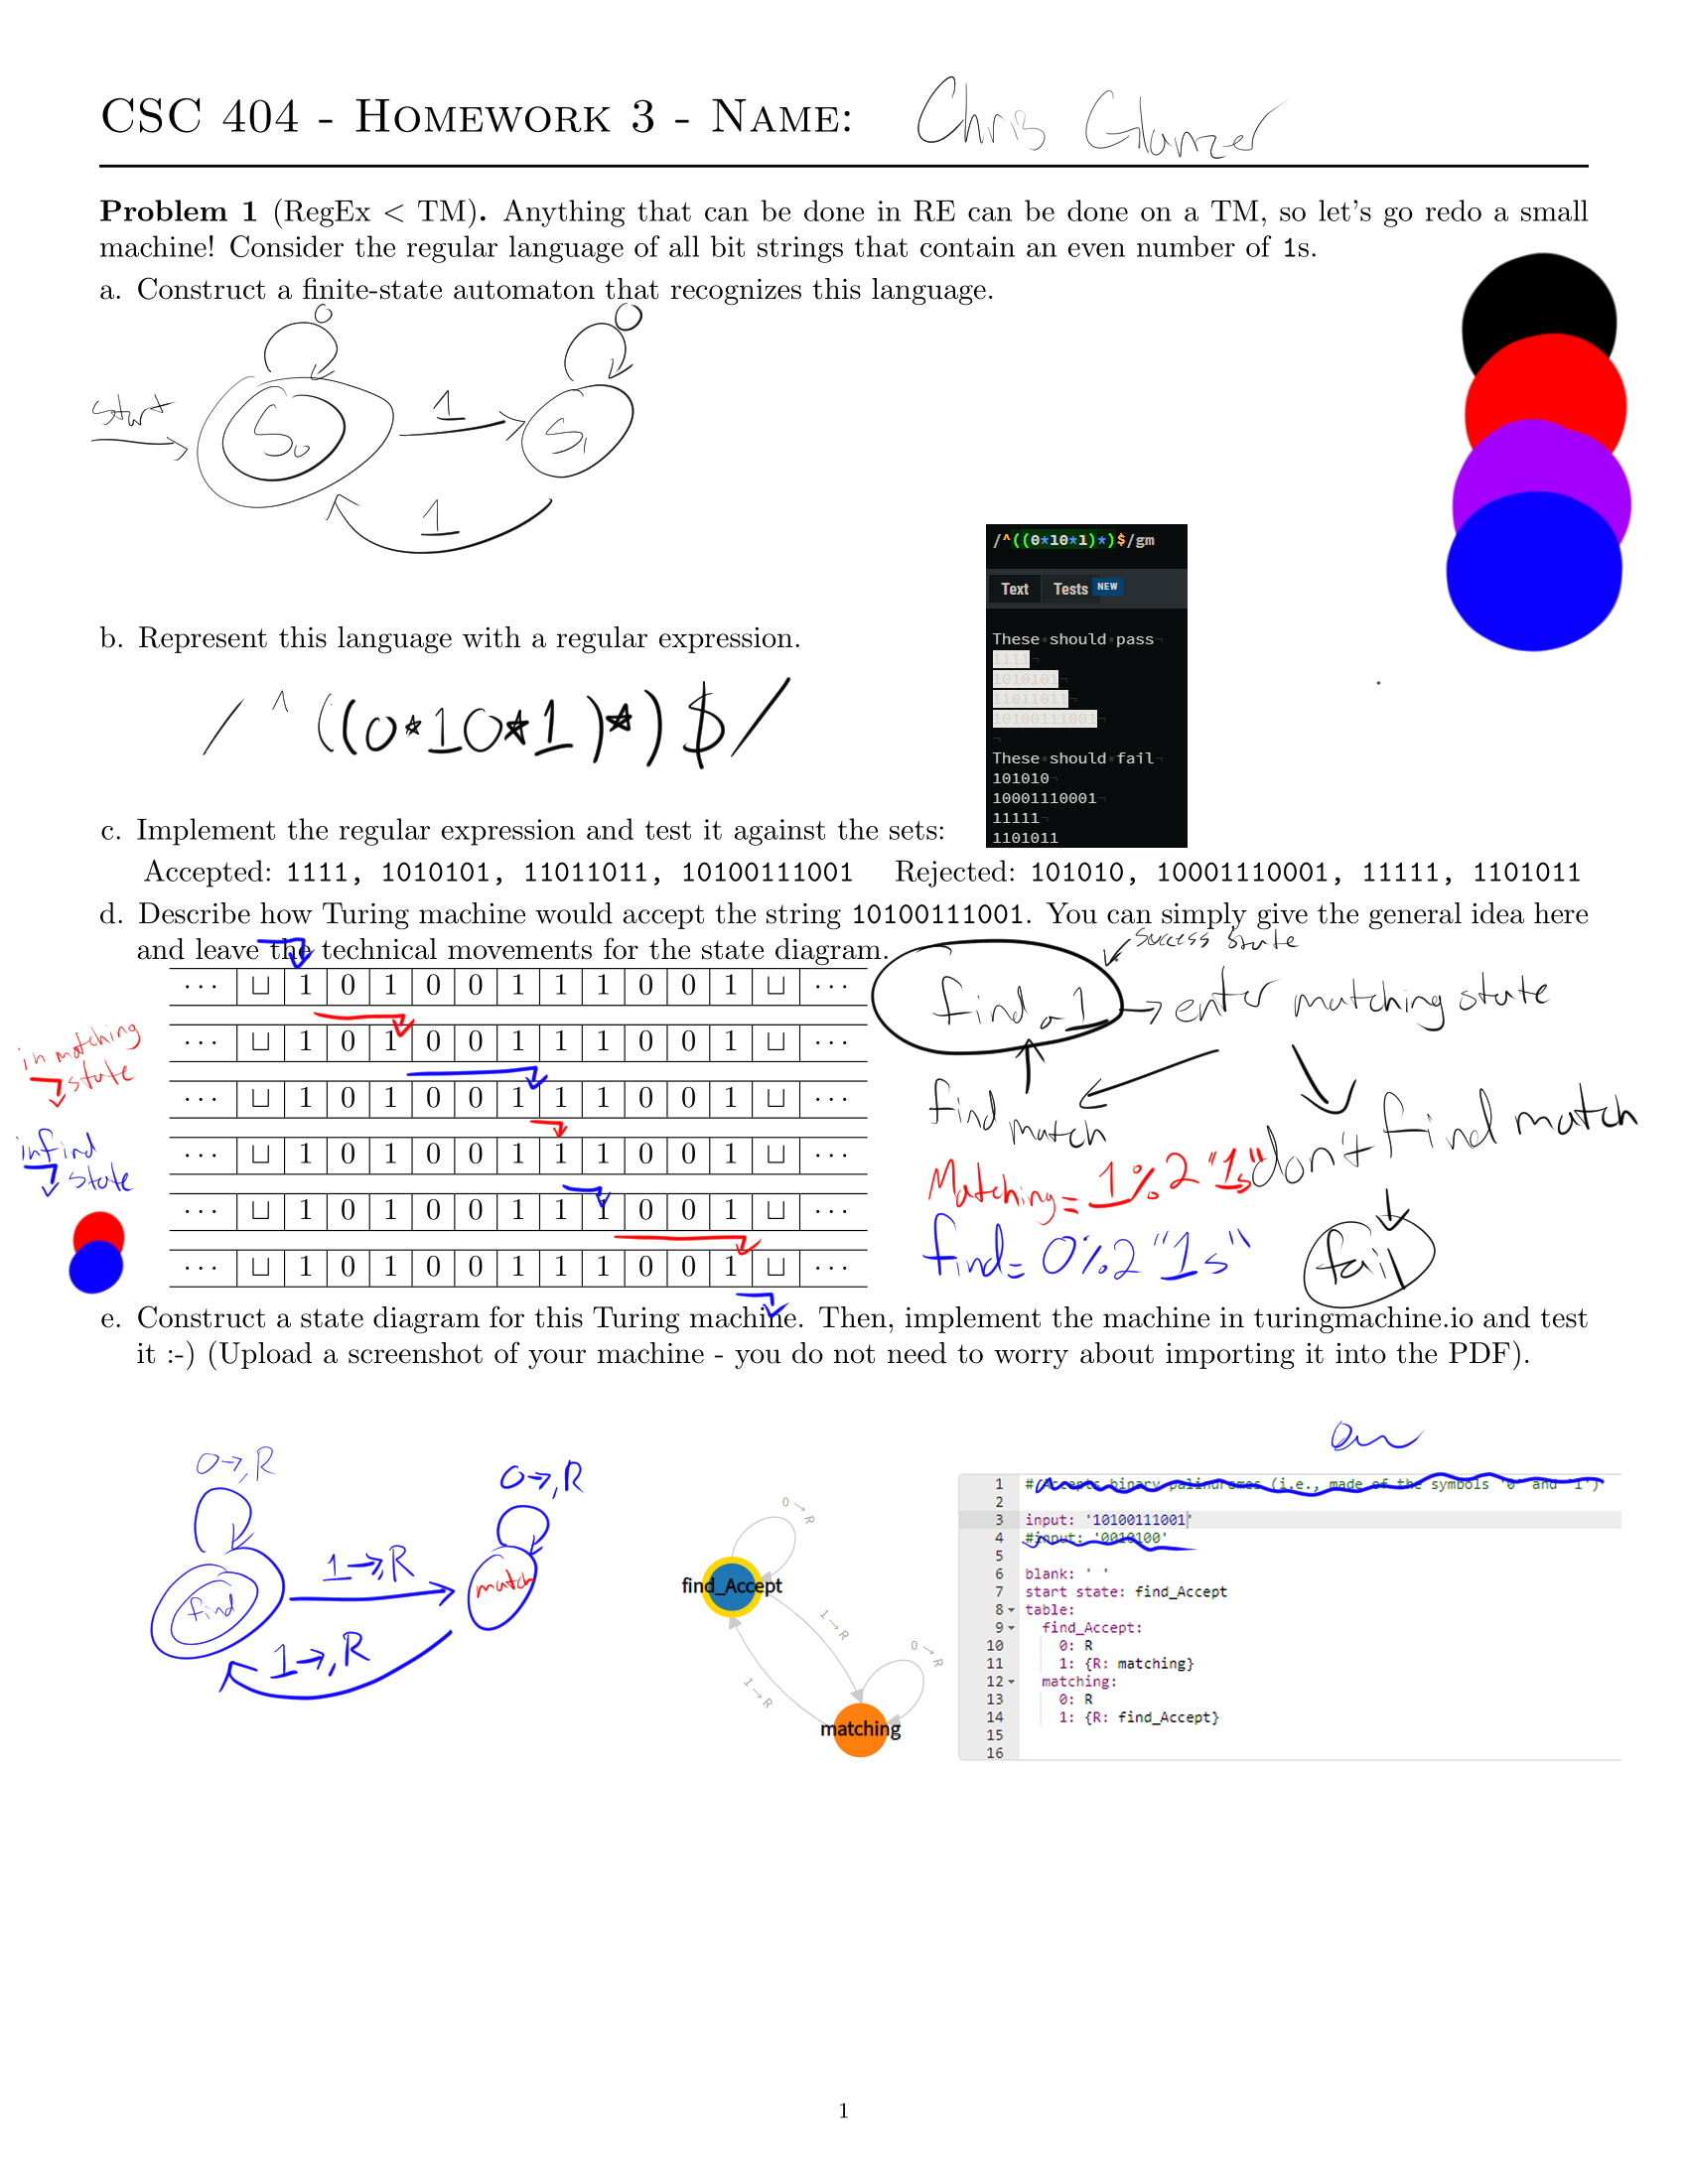 CSC 404 - Homework 3 - Name: Chris Glanzer
Problem 1 (RegEx < TM). Anything that can be done in RE can be done on a TM, so let's go redo a small
machine! Consider the regular language of all bit strings that contain an even number of 1s.
a. Construct a finite-state automaton that recognizes this language.
0
0
start
S₀
1
S₁
1
/^((0*10*1)*)$/gm
Text Tests NEW
These should pass
1111
1010101
11011011
10100111001
These should fail
101010
10001110001
11111
1101011
b. Represent this language with a regular expression.
/^((0*10*1)*)$/
c. Implement the regular expression and test it against the sets:
Accepted: 1111, 1010101, 11011011, 10100111001 Rejected: 101010, 10001110001, 11111, 1101011
d. Describe how Turing machine would accept the string 10100111001. You can simply give the general idea here
and leave the technical movements for the state diagram.
success state
··· ⊔ 1 0 1 0 0 1 1 1 0 0 1 ⊔ ···
··· ⊔ 1 0 1 0 0 1 1 1 0 0 1 ⊔ ···
··· ⊔ 1 0 1 0 0 1 1 1 0 0 1 ⊔ ···
··· ⊔ 1 0 1 0 0 1 1 1 0 0 1 ⊔ ···
··· ⊔ 1 0 1 0 0 1 1 1 0 0 1 ⊔ ···
··· ⊔ 1 0 1 0 0 1 1 1 0 0 1 ⊔ ···
in matching
state
in find
state
find a 1 → enter matching state
find match
don't find match
Matching = 1%2 "1s"
find = 0%2 "1s"
fail
e. Construct a state diagram for this Turing machine. Then, implement the machine in turingmachine.io and test
it :-) (Upload a screenshot of your machine - you do not need to worry about importing it into the PDF).
0→,R
0→,R
find
1→,R
match
1→,R
0→R
find_Accept
1→R
0→R
1→R
matching
1 # Accepts binary palindromes (i.e., made of the symbols '0' and '1')
2
3 input: '10100111001'
4 #input: '0010100'
5
6 blank: ' '
7 start state: find_Accept
8 table:
9 find_Accept:
10 0: R
11 1: {R: matching}
12 matching:
13 0: R
14 1: {R: find_Accept}
15
16
1